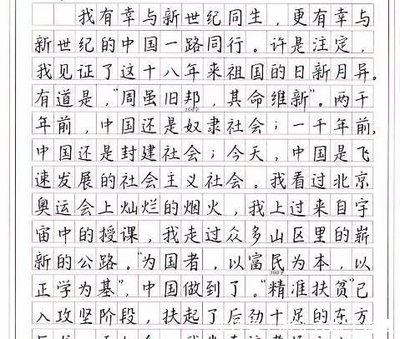 我有幸与新世纪同生，更有幸与
新世纪的中国一路同行。许是注定，
我见证了这十八年来祖国的日新月异。
有道是，“周虽旧邦，其命维新”。两千
年前，中国还是奴隶社会；一千年前，
中国还是封建社会；今天，中国是飞
速发展的社会主义社会。我看过北京
奥运会上灿烂的烟火，我上过来自宇
宙中的授课，我走过众多山区里的崭
新的公路。“为国者，以富民为本，以
正学为基”，中国做到了。“精准扶贫”已
入攻坚阶段，扶起了后劲十足的东方